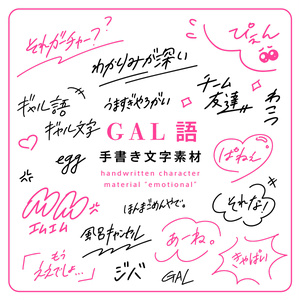 それガーチャー??
ぴえん
わかりみが深い
ギャル語
ギャル文字
うますぎやろがい
チーム
友達
わこつ
GAL語
手書き文字素材
handwritten character
material "emotional"
egg
ぱねぇ
エムエム
ほんまごめんやで。
それな!
「もう
ええでしょ…」
風呂キャンセル
あーね。
ジバ
GAL
きゃぱい